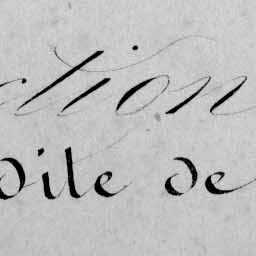 ction
Dile de